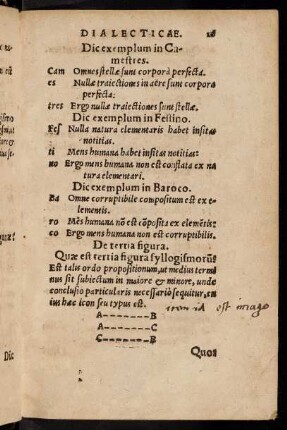 DIALECTICAE.
Dic exemplum in Ca-
mestres.
Cam Omnes stellæ sunt corpora perfecta.
es Nullæ traiectiones in aëre sunt corpora
perfecta:
tres Ergo nullæ traiectiones sunt stellæ.
Dic exemplum in Festino.
Fes Nulla natura elementaris habet insitas
notitias
ti Mens humana habet insitas notitias:
no Ergo mens humana non est conflata ex na
tura elementari.
Dic exemplum in Baroco.
Ba Omne corruptibile compositum est ex e-
lementis.
ro Mẽs humana nõ est cõposita ex elemẽtis:
co Ergo mens humana non est corruptibilis.
De tertia figura.
Quæ est tertia figura syllogismorũ?
Est talis ordo propositionum, ut medius termi
nus sit subiectum in maiore & minore, unde
conclusio particularis necessariò sequitur, cu
ius hæc icon seu typus est. id est imago
A-------B
A-------C
C-------B
Quos
Dic